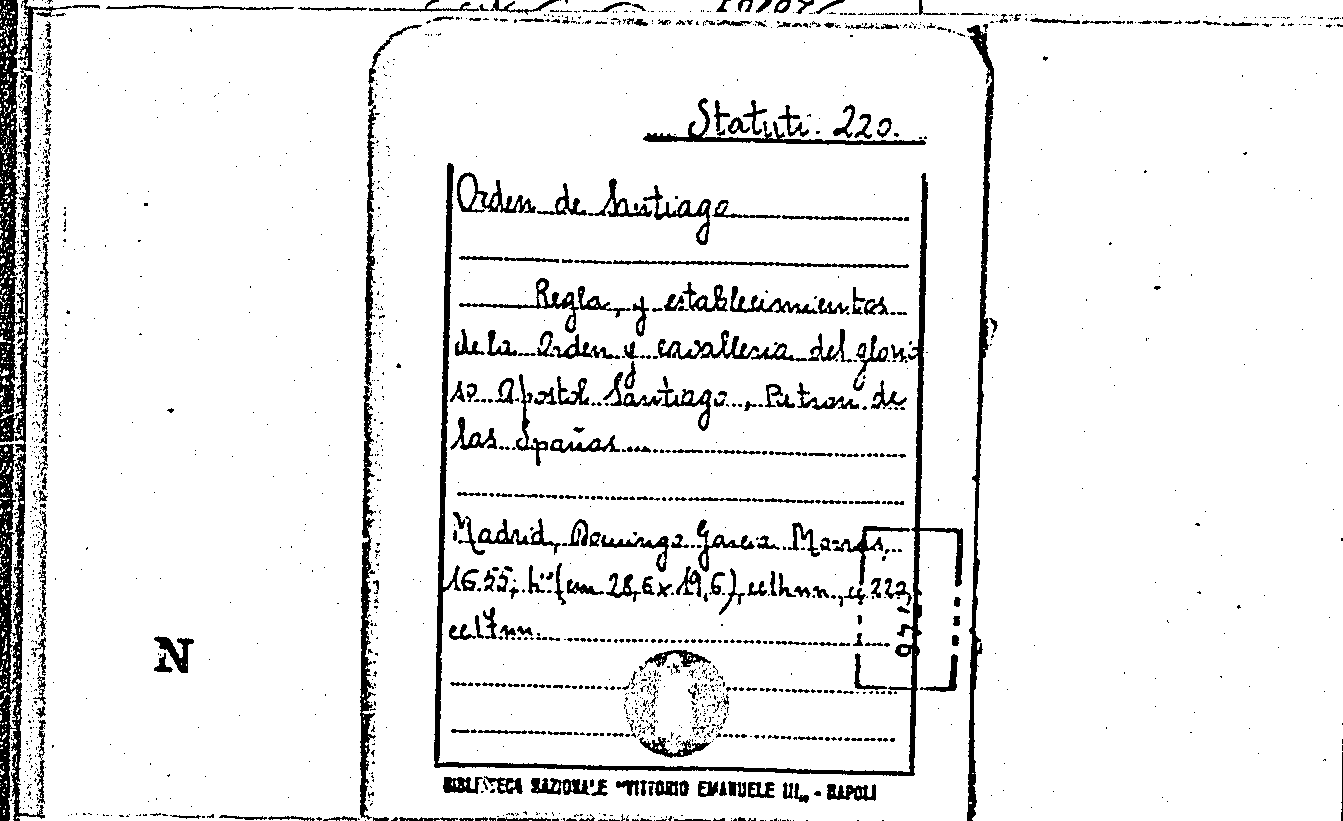 Statuti. 220.
Orden de Santiago
Regla, y establecimientos
de la Orden y cavalleria del glorio
so Apostol Santiago, Patron de
las Spañas
Madrid, Domingo Garcia Morras,
1655; (cm 28,6 x 19,6), cc 222,
cc 17 nn.
N
BIBLIOTECA NAZIONALE "VITTORIO EMANUELE III„ - NAPOLI